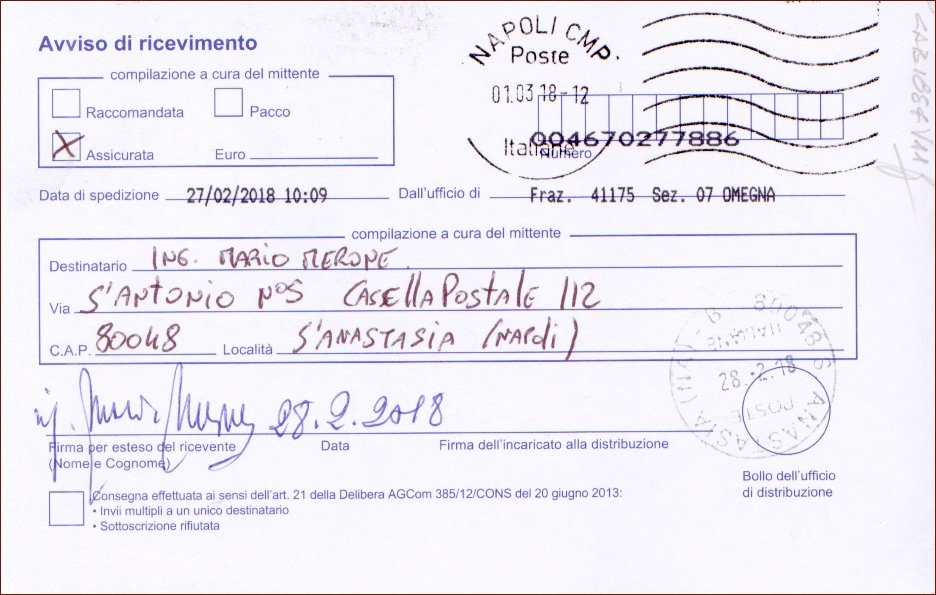 Avviso di ricevimento
NAPOLI CMP.
Poste
01.03 18-12
Italiane
compilazione a cura del mittente
Raccomandata
Pacco
Assicurata
Euro
004670277886
Numero
Data di spedizione 27/02/2018 10:09 Dall'ufficio di Fraz. 41175 Sez. 07 OMEGNA
compilazione a cura del mittente
Destinatario ING. MARIO MERONE
Via S'ANTONIO N°5 CASELLA POSTALE 112
C.A.P. 80048 Località S'ANASTASIA (NAPOLI)
80048 S. ANASTASIA (NA)
28.-2.18
POSTE
ITALIANE
28.2.2018
Firma per esteso del ricevente
(Nome e Cognome)
Data
Firma dell'incaricato alla distribuzione
Bollo dell'ufficio
di distribuzione
Consegna effettuata ai sensi dell'art. 21 della Delibera AGCom 385/12/CONS del 20 giugno 2013:
• Invii multipli a un unico destinatario
• Sottoscrizione rifiutata